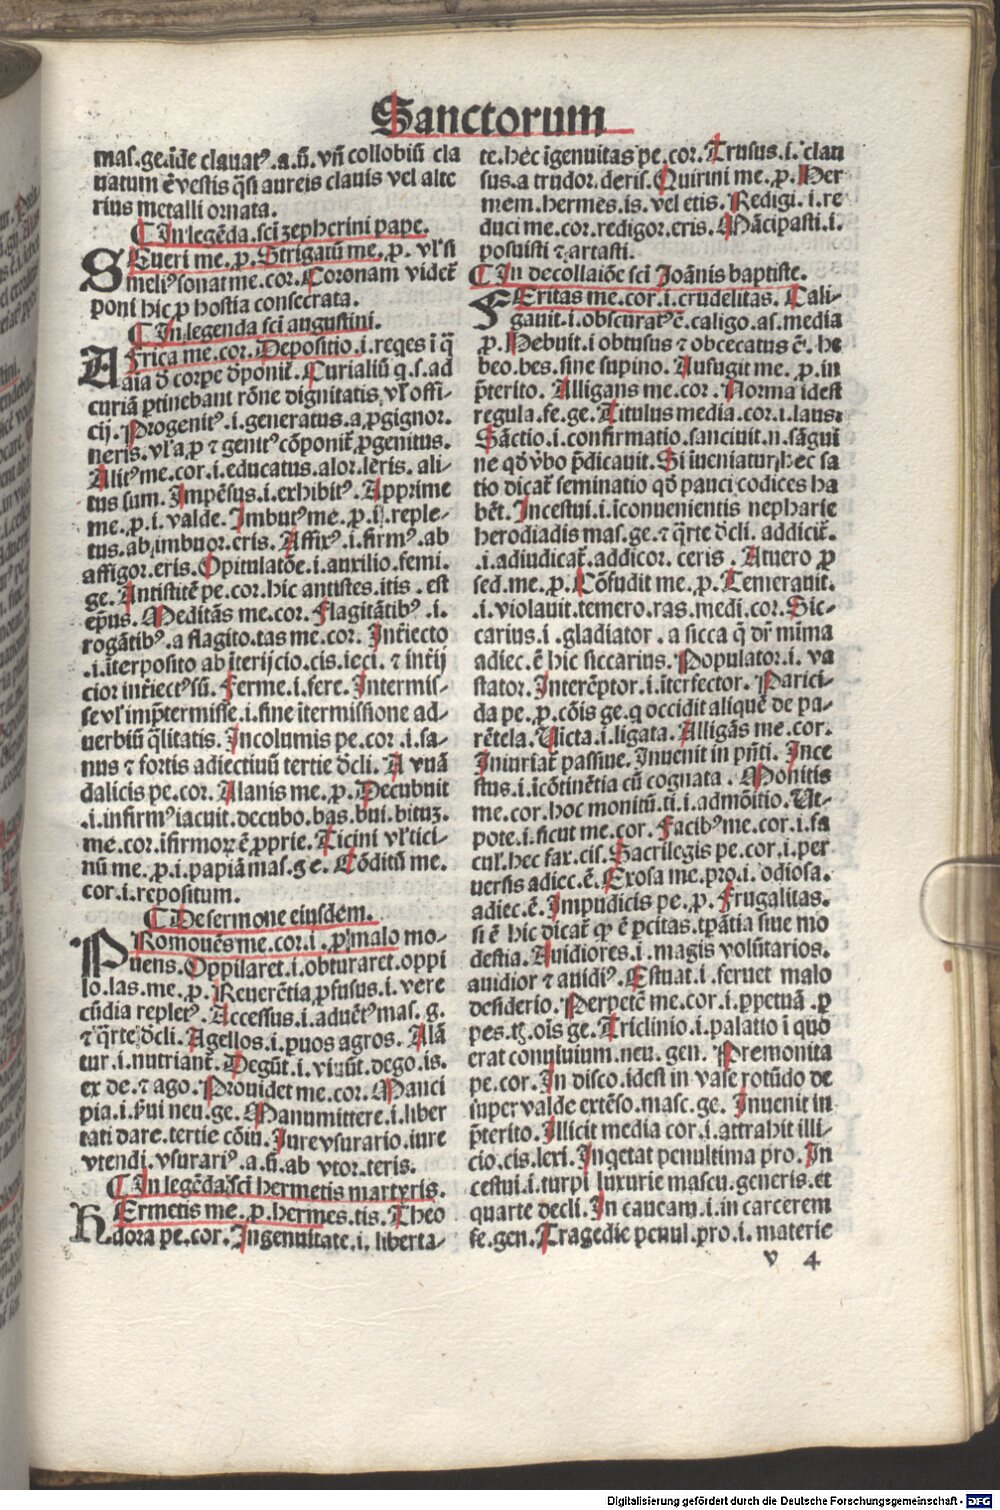 Sanctorum
mas.ge.īde clauatꝰ.a.ū.vn̄ collobiū cla
uatum ē vestis q̄si aureis clauis vel alte
rius metalli ornata.
¶ In legēda.sci zepherini pape.
SEueri me.p.Strigauū me.p.vl' si
meliꝰ sonat me.cor.Coronam videt̄
poni hic p hostia consecrata.
¶ In legenda sci augustini.
AFrica me.cor.Depositio.i.reqes i q̄
aīa d̄ corpe d̄ponit̄.Curialiū q.s.ad
curiā ptinebant rōne dignitatis vl' offi-
cij.Progenitꝰ.i.generatus.a pgignor.
neris.vl' a p ⁊ genitꝰ cōponit̄ pgenitus.
Alitꝰ me.cor.i.educatus.alor.leris.ali-
tus sum.Impēsus.i.exhibitꝰ.Apprime
me.p.i.valde.Imbutꝰ me.p.i.reple-
tus.ab imbuor.eris.Affixꝰ.i.firmꝰ.ab
affigor.eris.Opitulatōe.i.auxilio.femi.
ge.Antistitē pe.cor.hic antistes.itis.est
ep̄us.Meditās me.cor.Flagitātibꝰ.i.
rogātibꝰ.a flagito.tas me.cor.Int̄iecto
.i.īterposito ab īterijcio.cis.ieci.⁊ int̄ij
cior int̄iectꝰ sū.Ferme.i.fere.Intermis-
se vl' imp̄termisse.i.sine ītermissione ad-
uerbiū q̄litatis.Incolumis pe.cor.i.sa-
nus ⁊ fortis adiectiuū tertie d̄cli.A vuā
dalicis pe.cor.Alanis me.p.Decubuit
.i.infirmꝰ iacuit.decubo.bas.bui.bituꝫ.
me.cor.ifirmorꝝ ē pprie.Ticini vl' tici-
nū me.p.i.papiā mas.ge.Cōditū me.
cor.i.repositum.
¶ De sermone eiusdem.
PRomouēs me.cor.i.p malo mo-
uens.Oppilaret.i.obturaret.oppi
lo.las.me.p.Reuerētia pfusus.i.vere
cūdia repletꝰ.Accessus.i.aduētꝰ mas.g.
⁊ q̄rte d̄cli.Agellos.i.puos agros.Alā
tur.i.nutriant̄.Degūt.i.viuūt.dego.is.
ex de.⁊ ago.Prouidet me.cor.Manci
pia.i.s̄ui neu.ge.Manumittere.i.liber
tati dare.tertie cōiu.Iure vsurario.iure
vtendi.vsurariꝰ.a.ū.ab vtor.teris.
¶ In legēda sci hermetis martyris.
HErmetis me.p.hermes.tis.Theo
dora pe.cor.Ingenuitate.i.liberta-
te.hec īgenuitas pe.cor.Trusus.i.clau
sus.a trudor.deris.Quirini me.p.Her
mem.hermes.is.vel etis.Redigi.i.re
duci me.cor.redigor.eris.Mācipasti.i.
posuisti ⁊ artasti.
¶ In decollaiōe sci Joānis baptiste.
FEritas me.cor.i.crudelitas.Cali-
gauit.i.obscuratꝰ ē.caligo.as.media
p.Hebuit.i obtusus ⁊ obcecatus ē.he
beo.bes.sine supino.Aufugit me.p.in
p̄terito.Alligans me.cor.Norma idest
regula.fe.ge.Titulus media.cor.i.laus:
Sāctio.i.confirmatio.sanciuit.n.sāgui
ne qd̄ v̄bo p̄dicauit.Si īueniatur hec sa
tio dicat̄ seminatio qd̄ pauci codices ha
bēt.Incestui.i.iconuenientis nepharie
herodiadis mas.ge.⁊ q̄rte d̄cli.addicit̄.
.i.adiudicat̄.addicor.ceris.At vero p
sed.me.p.Cōfudit me.p.Temerauit.
.i.violauit.temero.ras.medi.cor.Sic-
carius.i.gladiator.a sicca q̄ dr̄ mīma
adiec.ē hic siccarius.Populator.i.va
stator.Interēptor.i.īterfector.Parici-
da pe.p.cōis ge.q occidit aliquē de pa-
rētela.Uicta.i.ligata.Alligās me.cor.
Iniuriat̄ passiue.Inuenit in pn̄ti.Ince
stus.i.icōtinētia cū cognata.Monitis
me.cor.hoc monitū.ti.i.admōitio.Ut-
pote.i.sicut me.cor.Facibꝰ me.cor.i.fa
cul'.hec fax.cis.Sacrilegis pe.cor.i.per
uersis adiec.ē.Exosa me.pro.i.odiosa.
adiec.ē.Impudicis pe.p.Frugalitas.
si ē hic dicat̄ qꝫ ē pcitas.tpātia siue mo
destia.Auidiores.i.magis volūtarios.
auidior ⁊ auidiꝰ.Estuat.i.feruet malo
desiderio.Perpetē me.cor.i.ppetuā.p
pes.tꝫ.oīs ge.Triclinio.i.palatio i quo
erat conuiuium.neu.gen.Premonita
pe.cor.In disco.idest in vase rotūdo de
super valde extēso.masc.ge.Inuenit in
p̄terito.Illicit media cor.i.attrahit illi-
cio.cis.lexi.Inqetat penultima pro.In
cestui.i.turpi luxurie mascu.generis.et
quarte decli.In caueam.i.in carcerem
fe.gen.Tragedie penul.pro.i.materie
v 4
Digitalisierung gefördert durch die Deutsche Forschungsgemeinschaft - DFG